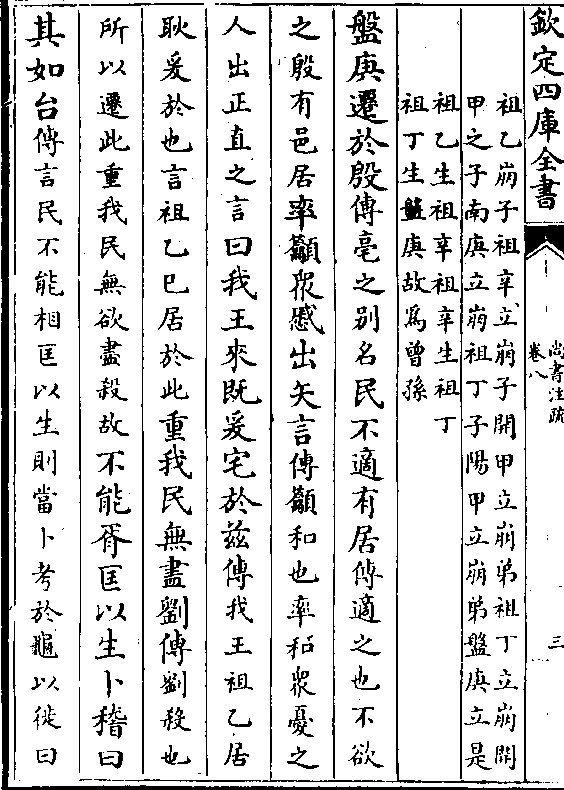 欽定四庫全書
尚書注疏
卷八
三
祖乙崩子祖辛立崩子開甲立崩弟祖丁立崩開
甲之子南庚立崩祖丁子陽甲立崩弟盤庚立是
祖乙生祖辛祖辛生祖丁
祖丁生盤庚故為曽孫
盤庚遷於殷傳亳之别名民不適有居傳適之也不欲
之殷有邑居率籲衆慼出矢言傳籲和也率和衆憂之
人出正直之言曰我王來既爰宅於兹傳我王祖乙居
耿爰於也言祖乙已居於此重我民無盡劉傳劉殺也
所以遷此重我民無欲盡殺故不能胥匡以生卜稽曰
其如台傳言民不能相匡以生則當卜考於龜以徙曰